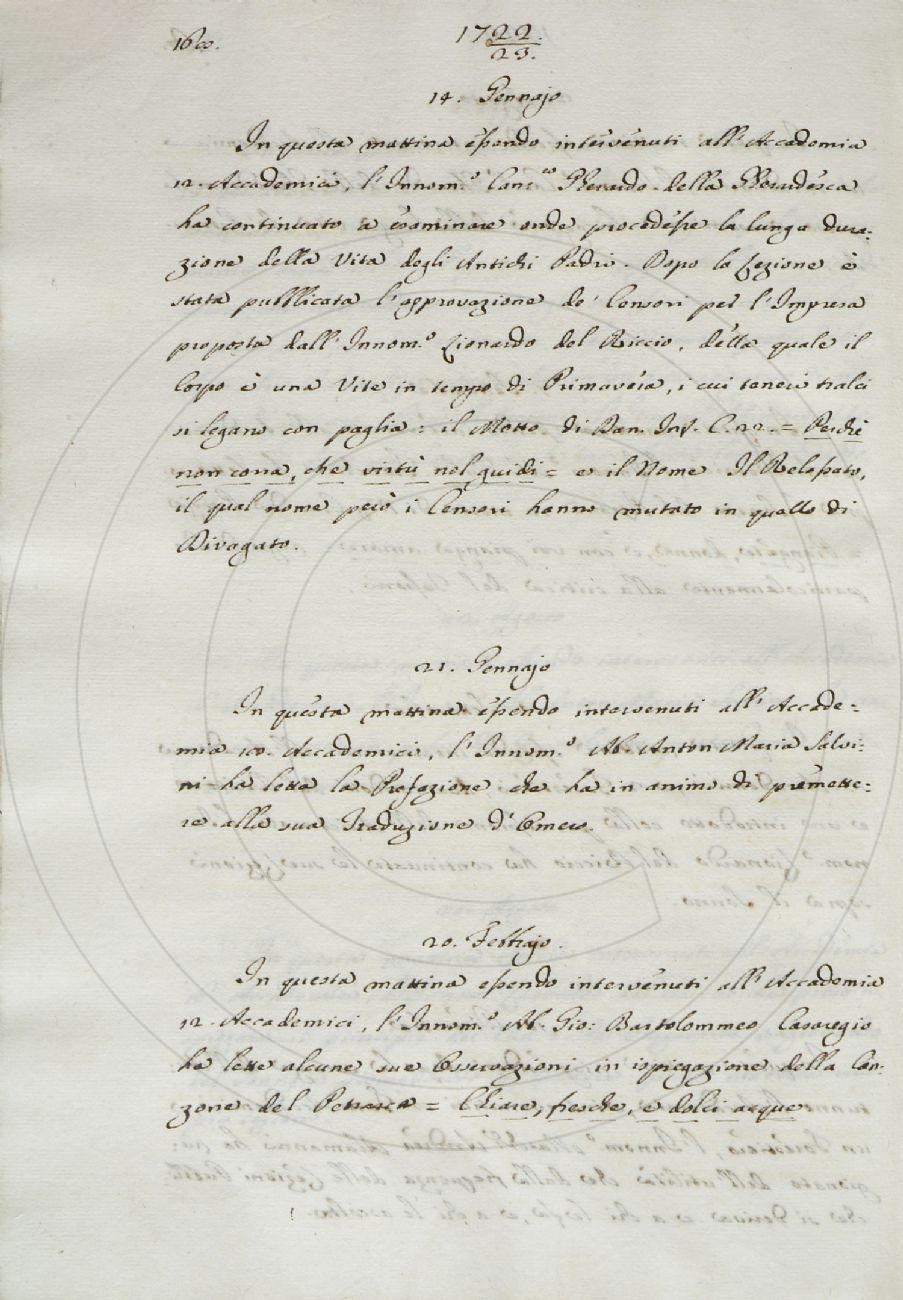 160. 1722.
23.
14. Gennajo
In questa mattina essendo intervenuti all'Accademia
12. Accademici, l'Innom.º Con: Gherardo della Gherardesca
ha continuato a esaminare onde procedesse la lunga dura:
zione della Vita degli Antichi Padri. Dopo la Lezione è
stata pubblicata l'approvazione de' Censori per l'Impresa
proposta dall'Innom.º Lionardo del Riccio, della quale il
Corpo è una Vite in tempo di Primavera, i cui teneri tralci
si legano con paglia: il Motto di Dan. Inf. C. 22. = Perchè
non corra, che virtù nol guidi = e il Nome Il Rilassato,
il qual nome però i Censori hanno mutato in quello di
Divagato.
21. Gennajo
In questa mattina essendo intervenuti all'Accade:
mia 10. Accademici, l'Innom.º Ab. Anton Maria Salvi:
ni ha letta la Prefazione che ha in animo di premette:
re alla sua Traduzione d'Omero.
20. Febbrajo.
In questa mattina essendo intervenuti all'Accademia
12. Accademici, l'Innom.º Ab. Gio: Bartolommeo Casaregio
ha lette alcune sue Osservazioni in ispiegazione della Can:
zone del Petrarca = Chiare, fresche, e dolci acque